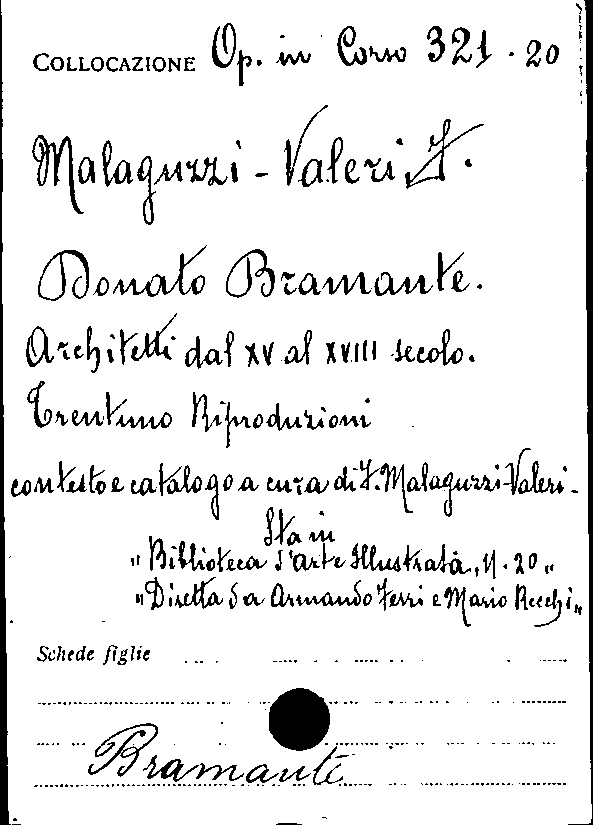 COLLOCAZIONE Op. in Corso 321.20
Malaguzzi-Valeri, F.
Donato Bramante.
Architetti dal XV al XVIII secolo.
Trentuno Riproduzioni
con testo e catalogo a cura di F. Malaguzzi-Valeri-
Sta in
"Biblioteca d'arte Illustrata, N. 20"
"Diretta da Armando Ferri e Mario Recchi"
Schede figlie
Bramante